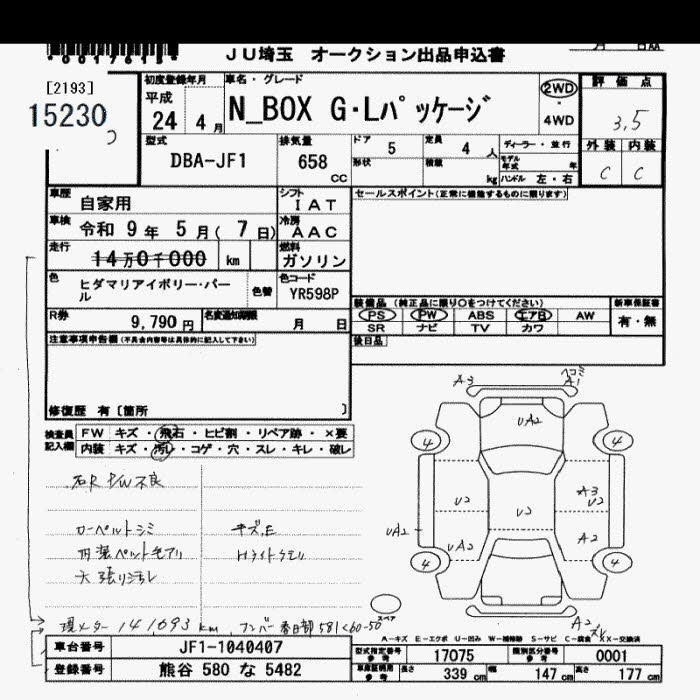 JU埼玉 オークション出品申込書
[2193]
15230
初度登録年月
平成
24 4月
車名・グレード
N_BOX G・Lパッケージ
2WD
・
4WD
評価点
3.5
外装 内装
C C
型式
DBA-JF1
排気量
658 CC
ドア 5
定員 4 人
形状 積載 kg
ディーラー・並行
モデル年式 年
ハンドル 左・右
車歴 自家用
シフト IAT
セールスポイント(正常に機能するものに限ります)
車検 令和 9年 5月( 7日)
冷房 AAC
走行 14万0千000 km
燃料 ガソリン
色 ヒダマリアイボリー・パール
色替
色コード YR598P
R券 9,790円
名変通知期限 月 日
装備品 (純正品に限り○をつけてください)
PS PW ABS エアB AW
SR ナビ TV カワ
新車保証書
有・無
後日品
注意事項申告欄(不具合内容等は具体的に記入して下さい)
修復歴 有〔箇所 〕
検査員記入欄
FW キズ・飛石・ヒビ割・リペア跡・×要
内装 キズ・汚れ・コゲ・穴・スレ・キレ・破レ
右R P/W不良
カーペットシミ キズ,E
内装ペット毛アリ Hライトクモリ
天張リヨゴレ
A3 ヘコミ A1
UA2
4 4
U2 U2 A3 U2
UA2 UA2 A2
4 4
スペア
A2
現メーター 141,693 km
ナンバー 春日部 581 く 60-50
A-キズ E-エクボ U-凹み W-補修跡 S-サビ C-腐食 XX-交換済
車台番号 JF1-1040407
登録番号 熊谷 580 な 5482
型式指定番号 参考 17075
類別区分番号 参考 0001
車庫証明用 参考 長さ 339 cm 幅 147 cm 高さ 177 cm